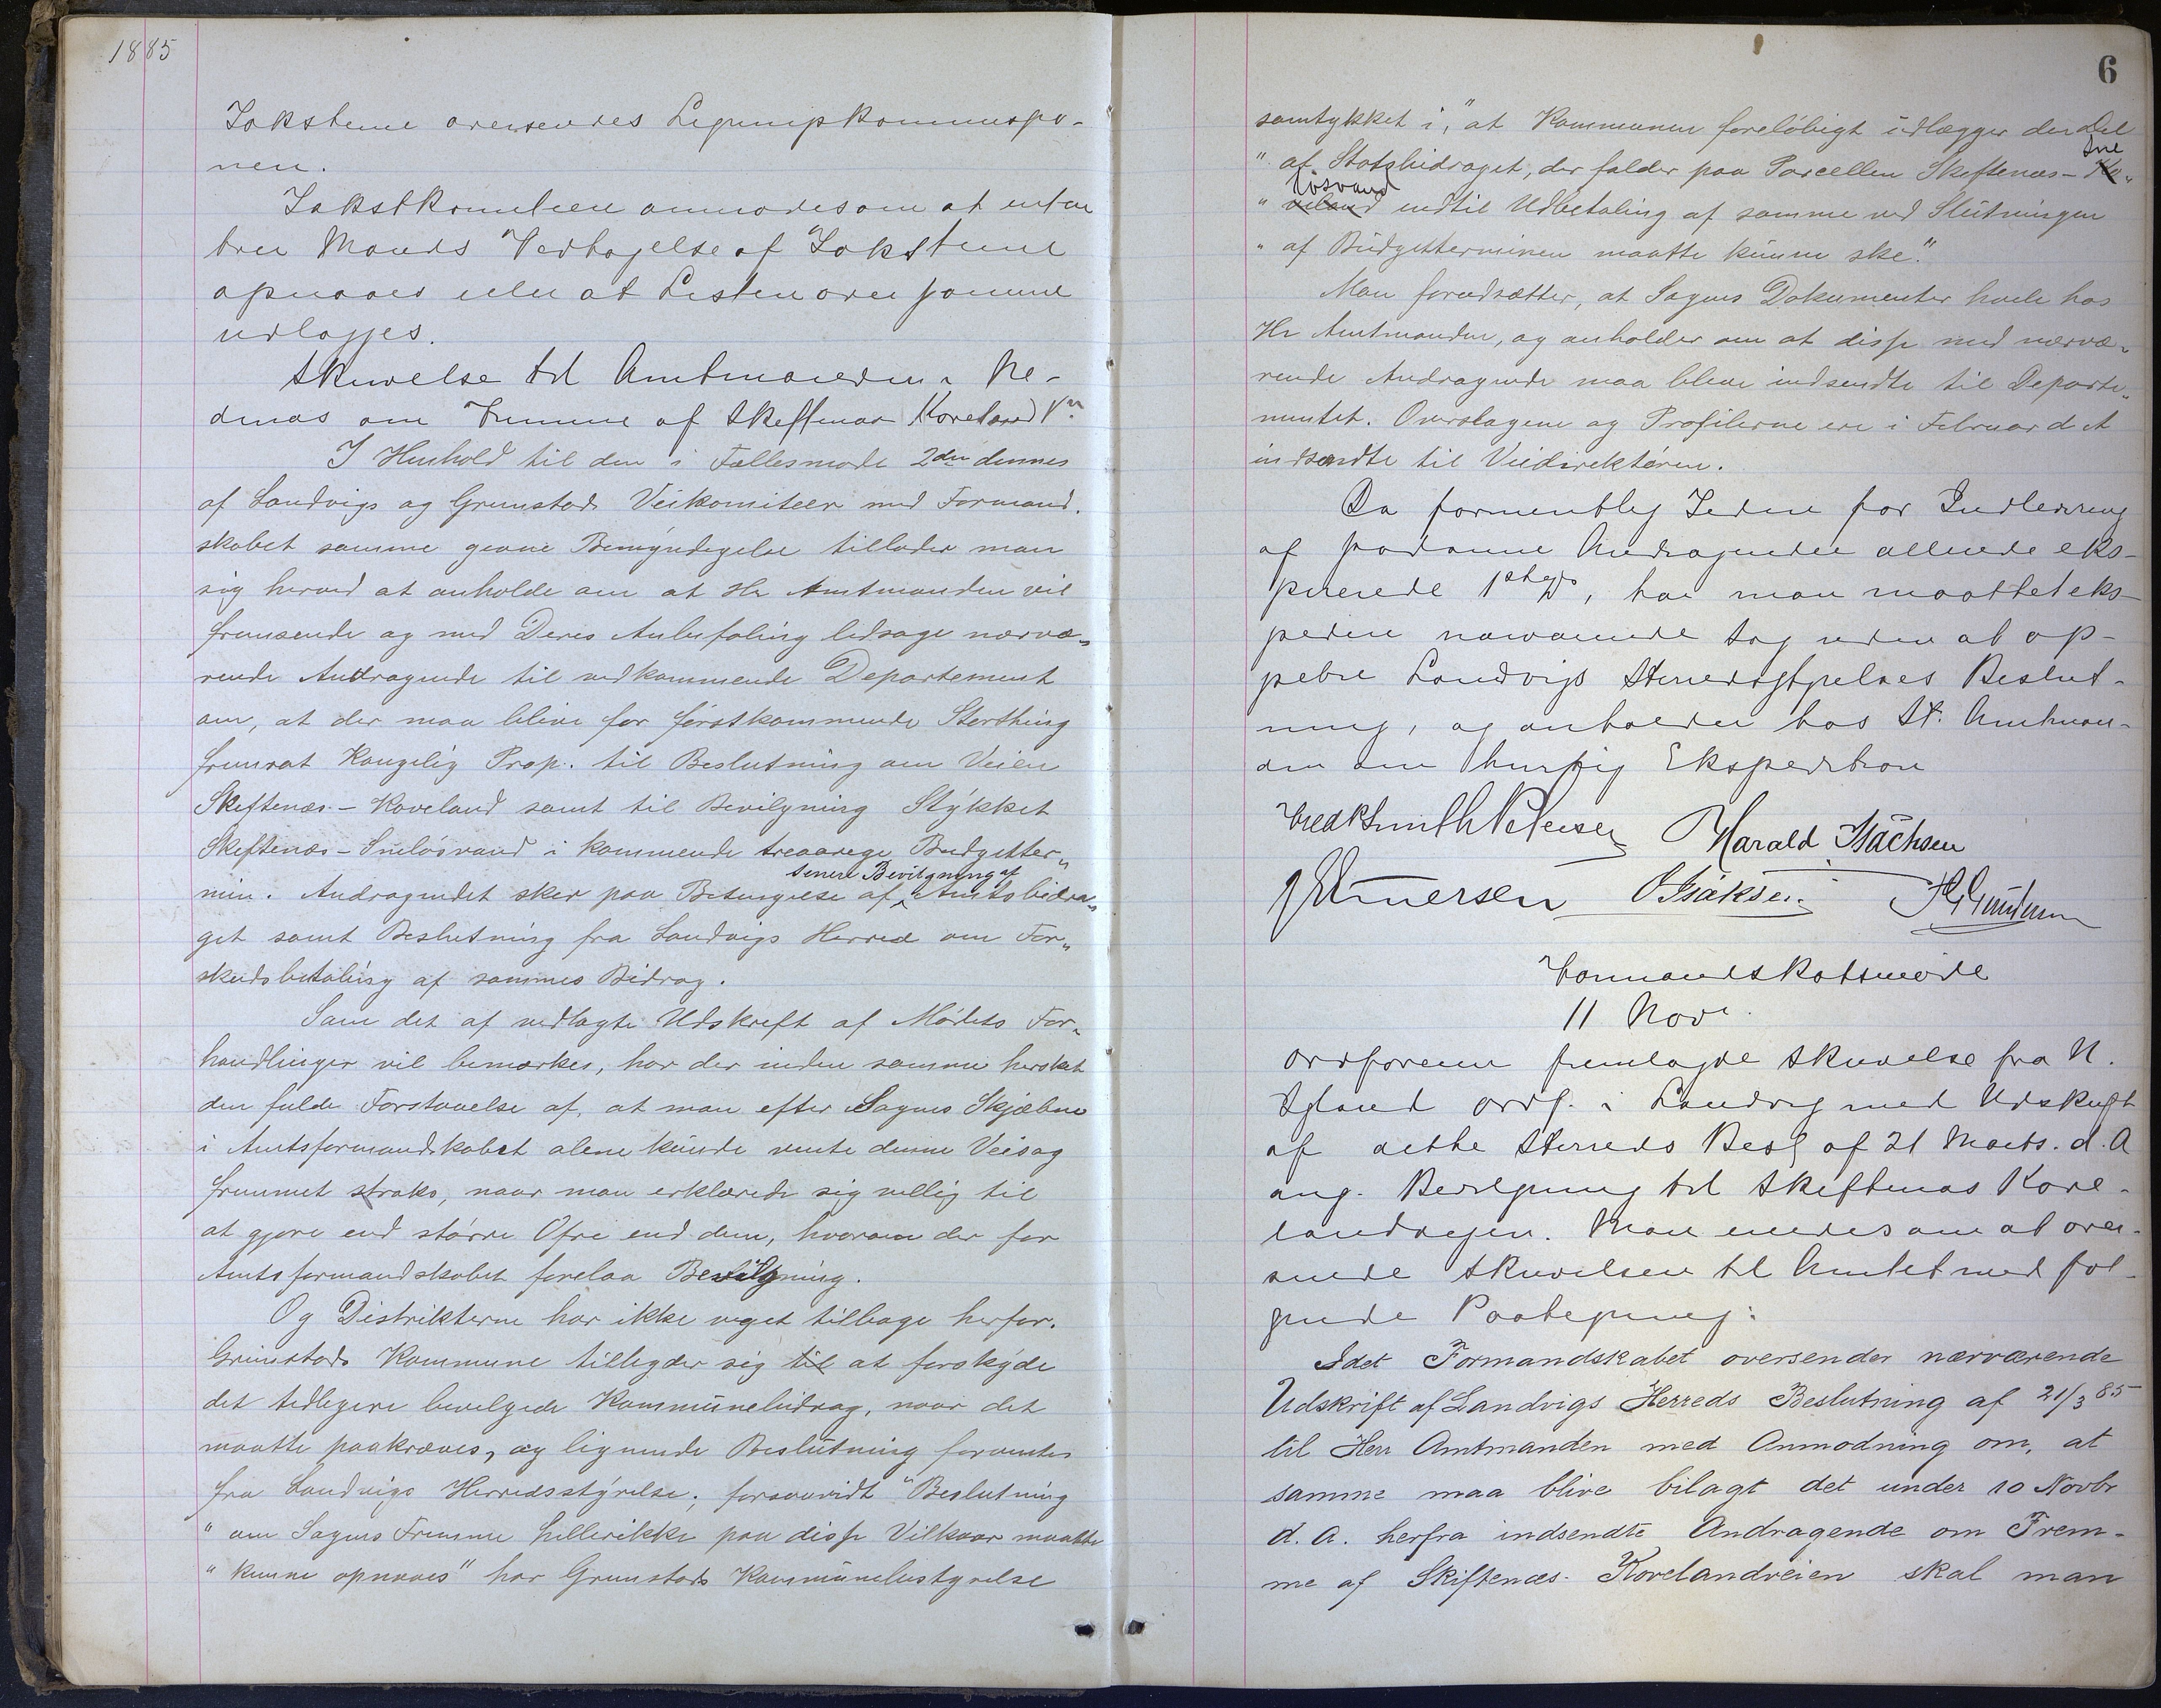 1885
Takstene oversendes Ligningskommisjo-
nen.
Takstkomiteen anmodes om at enten
tree Mands Vedtagelse af Takstene
opnaaes eller at Listen over samme
udlægges.
Skrivelse til Amtmanden i Ne-
denæs om Fremme af Skeftenæs Koreland V.
I Henhold til den i Fællesmøde 2den dennes
af Landvigs og Grimstads Veikomiteer med Formand-
skabet samme givne Bemyndigelse tillader man
sig herved at anholde om at Hr Amtmanden vil
fremsende og med Deres Anbefaling ledsage nærvæ„
rende Andragende til vedkommende Departement
om, at der maa blive for førstkommende Storthing
fremsat Kongelig Prop. til Beslutning om Veien
Skeftenæs - Koveland samt til Bevilgning Stykket
Skeftenæs - Ineløsvand i kommende treaarige Budgetter„
min. Andragendet sker paa Betingelse af senere Bevilgning af Amtsbidra„
get samt Beslutning fra Landvigs Herred om For„
skudsbetaling af sammes Bidrag.
Som det af vedlagte Udskrift af Mødets For„
handlinger vil bemærkes, har der inden samme hersket
den fulde Forstaaelse af, at man efter Sagens Skjæbne
i Amtsformandskabet alene kunde vente denne Veisag
fremmet straks, naar man erklærede sig villig til
at gjøre end større Ofre end dem, hvorom der for
Amtsformandskabet forelaa Bevilgning.
Og Distrikterne har ikke veget tilbage herfor.
Grimstads Kommune tilbyder sig til at forskyde
det tidligere bevilgede Kommunebidrag, naar det
maatte paakræves, og lignende Beslutning forventes
fra Landvigs Herredsstyrelse; forsaavidt "Beslutning
" om Sagens Fremme hellerikke paa disse Vilkaar maatte
" kunne opnaaes" har Grimstads Kommunebestyrelse
6
samtykket i, "at Kommunen foreløbigt udlægger den Del
" af Statsbidraget, der falder paa Parcellen Skeftenæs - Ko„ Ine
" veland løsvand indtil Udbetaling af samme ved Slutningen
" af Budgetterminen maatte kunne ske."
Man forudsætter, at Sagens Dokumenter hvile hos
Hr Amtmanden, og anholder om at disse med nærvæ„
rende Andragende maa blive indsendte til Departe„
mentet. Overslagene og Profilerne ere i Februar d A
indsendte til Veidirektøren.
Da formentlig Tiden for Indlevering
af saadanne Andragender allerede eks-
pirerede 1ste ds, har man maattet eks-
pedere nærværende Sag uden at op-
pebie Landvigs Herredsstyrelses Beslut-
ning, og anholder hos Hr. Amtman-
den om hurtig Ekspedition
Fredk Smith Petersen Harald Isachsen
O Isaksen
Formandskabsmøde
11 Novr.
Ordføreren fremlagde Skrivelse fra N.
Igland Ordf. i Landvig med Udskrift
af dette Herreds Besl af 21 Marts. d. A
ang. Bevilgning til Skeftenæs Kove-
landveien. Man enedes om at over-
sende Skrivelsen til Amtet med føl-
gende Paategning:
Idet Formandskabet oversender nærværende
Udskrift af Landvigs Herreds Beslutning af 21/3 85
til Herr Amtmanden med Anmodning om, at
samme maa blive bilagt det under 10 Novbr
d. A. herfra indsendte Andragende om Frem-
me af Skiftenæs- Kovelandveien skal man